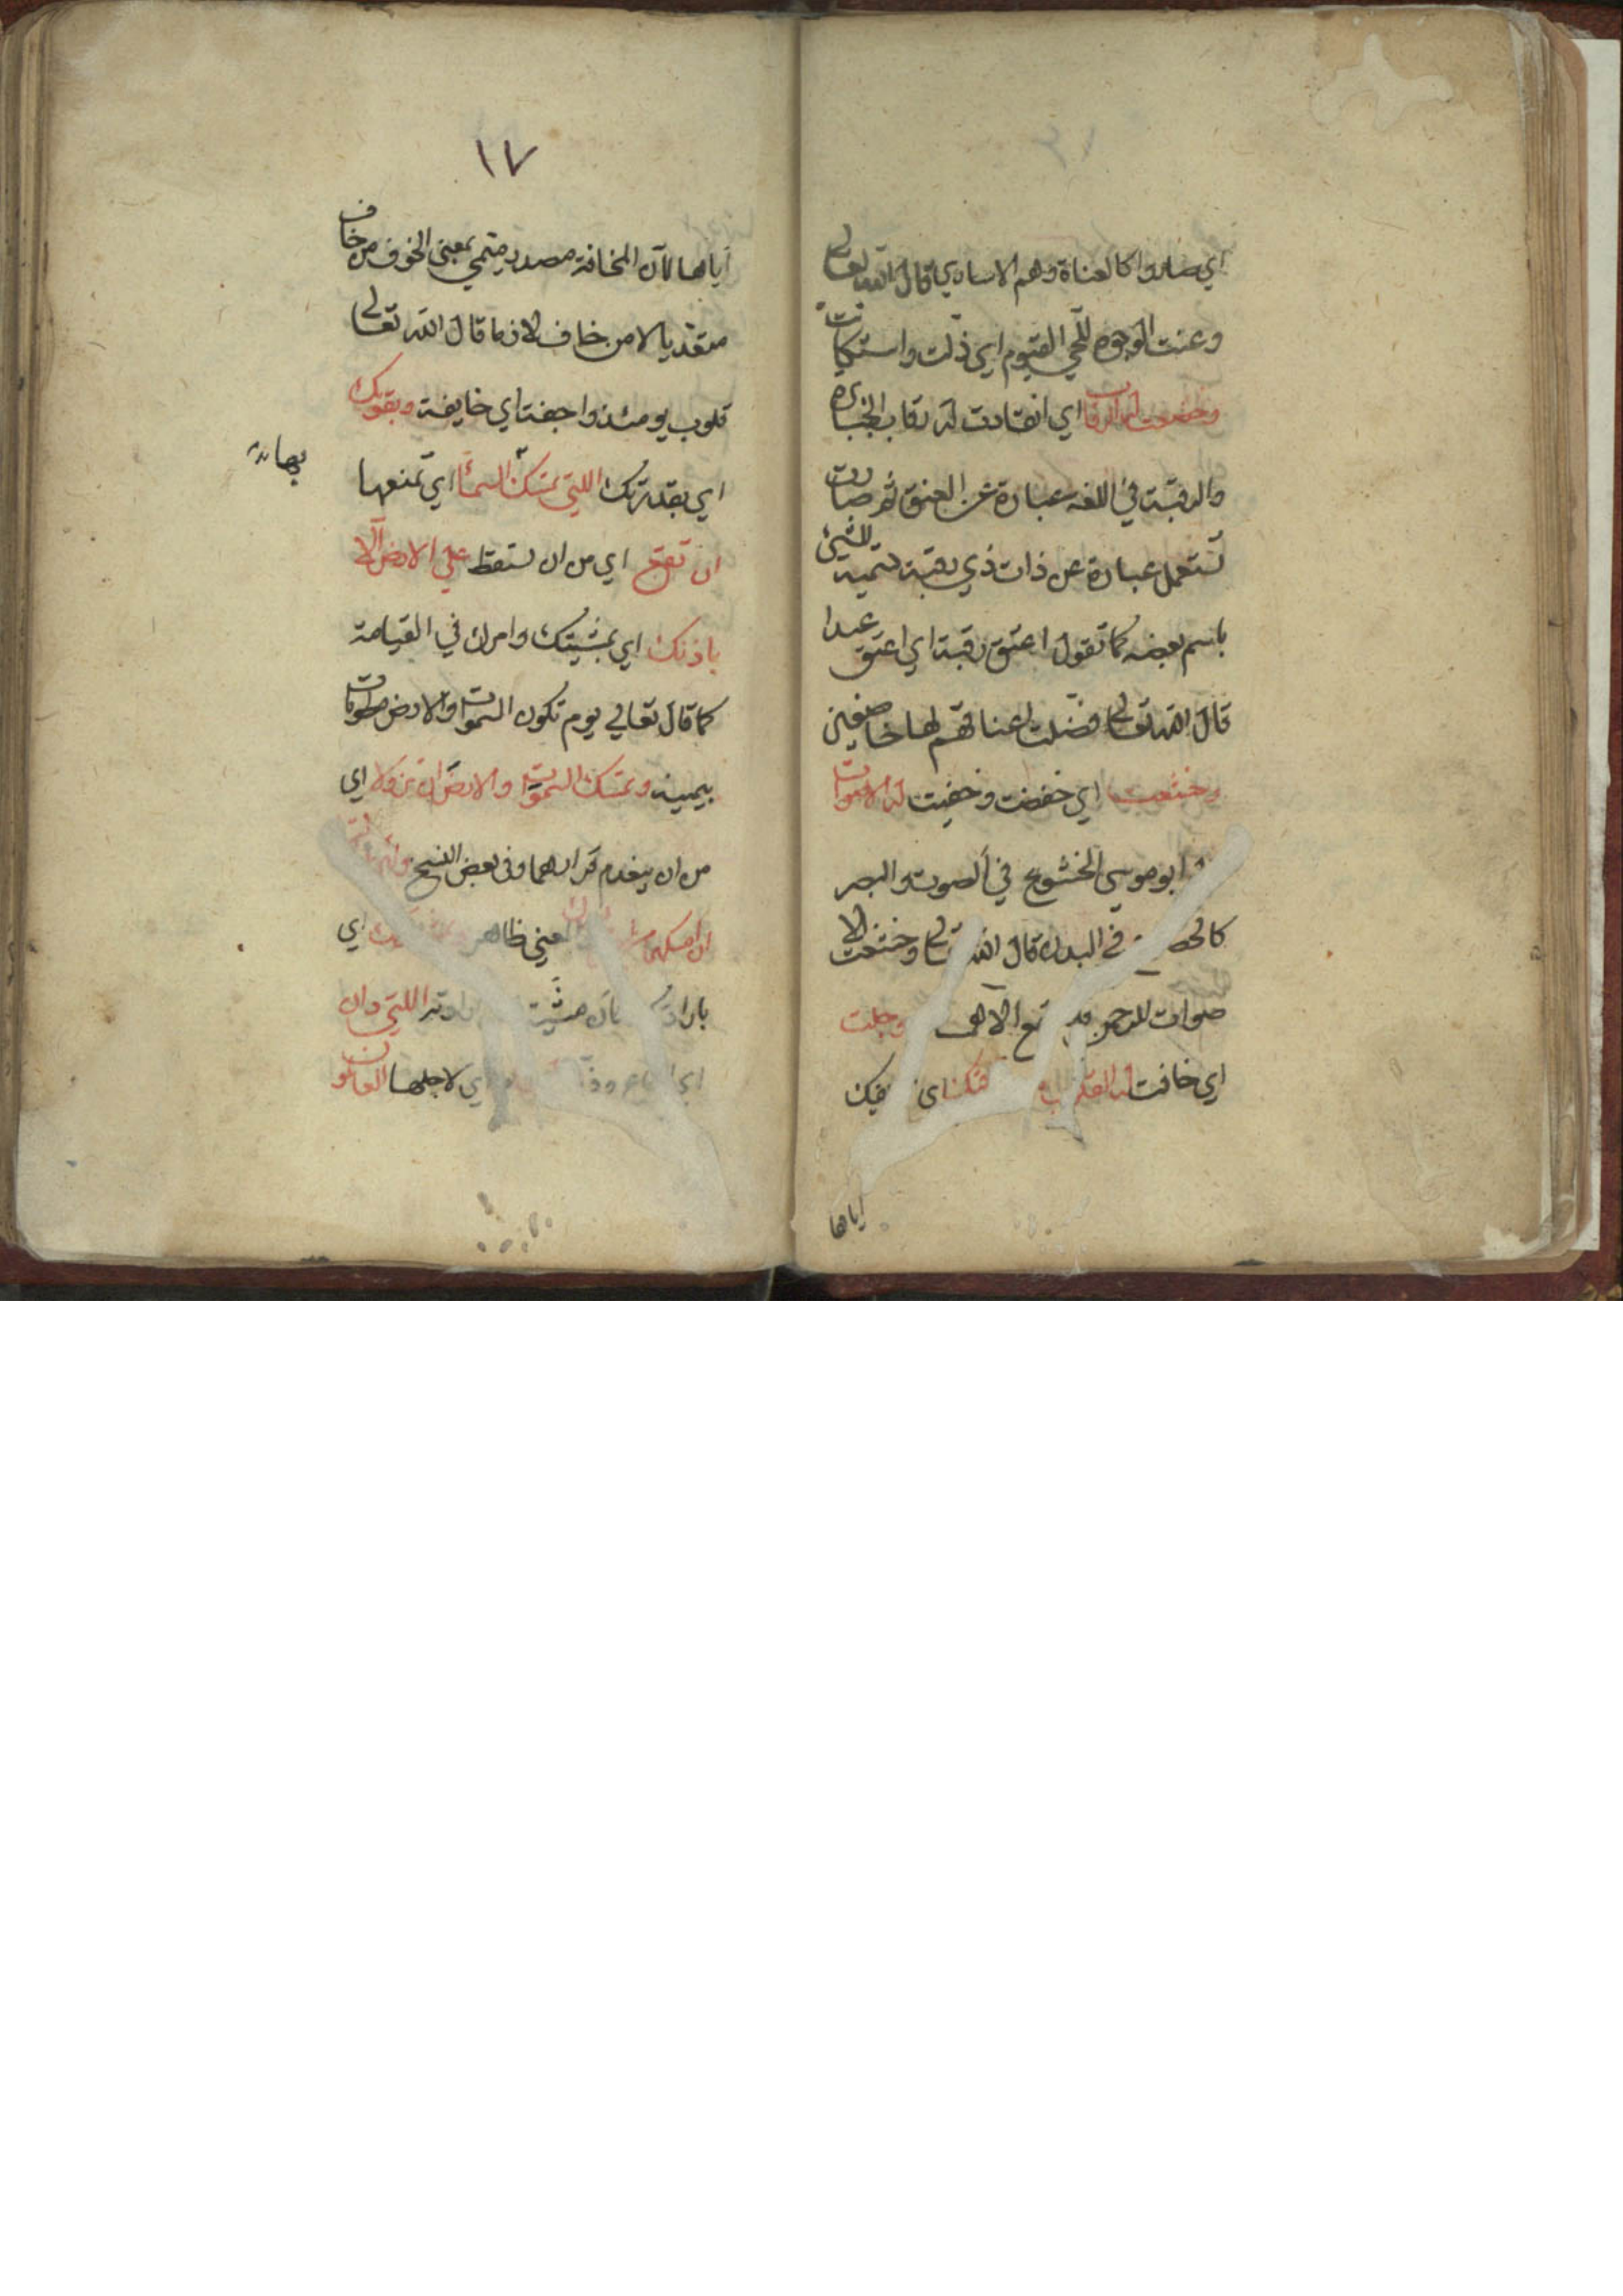 اي صاروا كالعناة وهم الاساري قال الله تعالى
وعنت الوجوه للحي القيوم اي ذلت واستكانت
وخضعت له الرقاب اي انقادت له رقاب الجبابرة
والرقبة في اللغه عبارة عن العنق ثم صارت
تستعمل عبارة عن ذات ذي رقبة تسمية للشيئ
باسم بعضه كما تقول اعتق رقبة اي اعتق عبدا
قال الله تعالى فضلت اعناقهم لها خاضعين
وخشعت اي خفضت وخفيت له الاصوات
ابو موسي الخشوع في الصوت والبصر
في البدن قال الله وخشعت الا
صوات للرحمن الاهى وجلت
اي خافت له اى
اياها
١٧
اياها لان المخافة مصدر ميمي بمعنى الخوف من خاف
متعديا لا من خاف لازما قال الله تعالى
قلوب يومئذ واجفة اي خايفة وبقوتك
اي بقدرتك اللتي تمسك السماء اي تمنعها
بها
ان تقع اي من ان تسقط علي الارض الا
باذنك اي بمشيتك وامرك في القيامة
كما قال تعالي يوم تكون السموات والارض مطويات
بيمينه وتمسك السموات والارض ان تزولا اي
من ان ينعدم قرارهما وفى بعض النسخ
ان امسكهما المعني ظاهر اي
اللتي دان
اي اي لاجلها العالمون